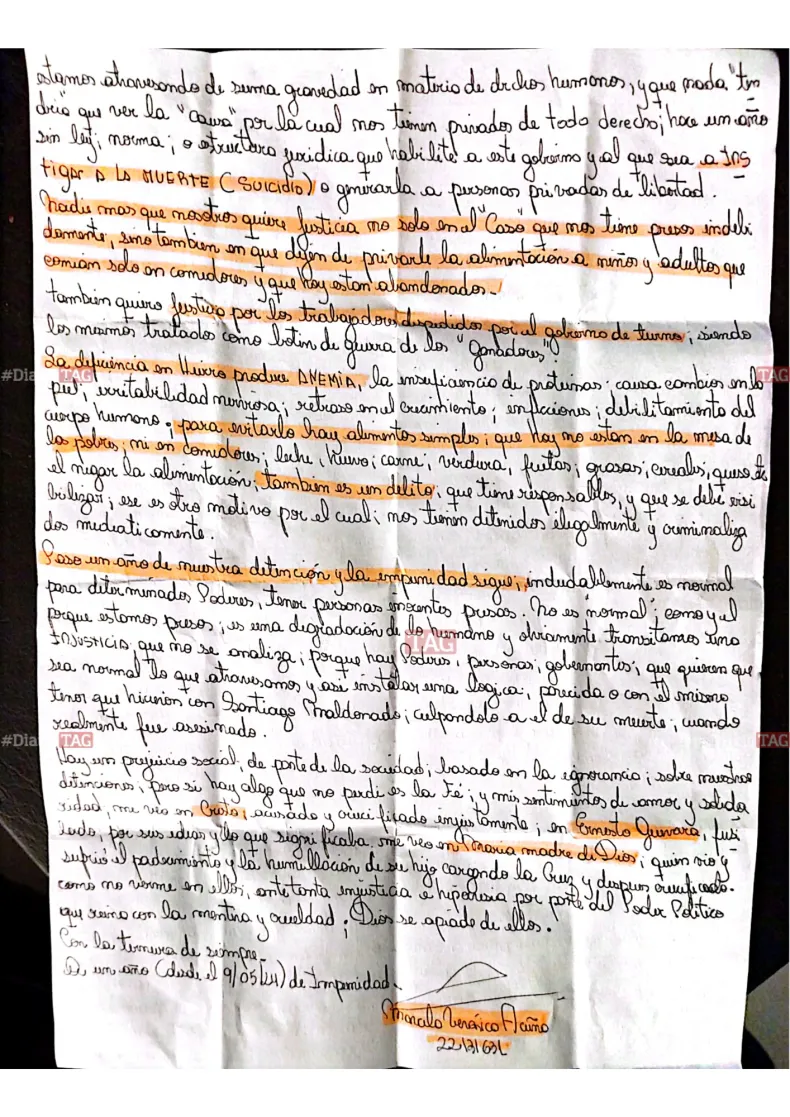 estamos atravesando de suma gravedad en materia de drchos humanos, y que nada "ten
dria" que ver la "causa" por la cual nos tienen privados de todo derecho; hace un año
sin ley; norma; o estructura juridica que habilite a este gobierno y al que sea a INS
TIGAR A LA MUERTE (SUICIDIO) o generarla a personas privadas de libertad.
Nadie mas que nosotros quiere justicia no solo en el "Caso" que nos tiene presos indebi
damente, sino tambien en que dejen de privarle la alimentación a niños y adultos que
comian solo en comedores y que hoy estan abandonados.-
tambien quiero justicia por los trabajadores despedidos por el gobierno de turno; siendo
los mismos tratados como botin de guerra de los "Ganadores".
La deficiencia en Hierro produce ANEMIA, la insuficiencia de proteinas: causa cambios en la
piel; irritabilidad nerviosa; retraso en el crecimiento; infecciones; debilitamiento del
cuerpo humano; para evitarlo hay alimentos simples; que hoy no estan en la mesa de
los pobres; ni en comedores; leche, huevo; carne; verdura, frutas; grasas; cereales; queso
el negar la alimentación; tambien es un delito; que tiene responsables, y que se debe visi
bilizar; ese es otro motivo por el cual; nos tienen detenidos ilegalmente y criminaliza
dos mediaticamente.
Paso un año de nuestra detención y la impunidad sigue; indudablemente es normal
para determinados Poderes, tener personas inocentes presas. No es "normal" como y el
porque estamos presos; es una degradación de lo humano y obviamente transitamos una
INJUSTICIA, que no se analiza; porque hay Poderes, personas; gobernantes; que quieren que
sea normal lo que atravesamos y asi instalar una logica; parecida o con el mismo
tenor que hicieron con Santiago Maldonado; culpandolo a el de su muerte, cuando
realmente fue asesinado.
Hay un prejuicio social, de parte de la sociedad; basado en la ignorancia; sobre nuestras
detenciones; pero si hay algo que no perdi es la Fé; y mis sentimientos de amor y solida
ridad, me veo en Cristo; acusado y crucificado injustamente; en Ernesto Guevara, fusi
lado, por sus ideas y lo que significaba. me veo en Maria madre de Dios; quien vio y
sufrió el padecimiento y la humillación de su hijo cargando la Cruz y despues crucificado.
como no verme en ellos, ante tanta injusticia e hipocresia por parte del Poder Politico
que reina con la mentira y crueldad; Dios se apiade de ellos.
Con la ternura de siempre.
A un año (desde el 9/05/24) de Impunidad.
#Dia
TAG
TAG
TAG
#Dia
TAG
TAG